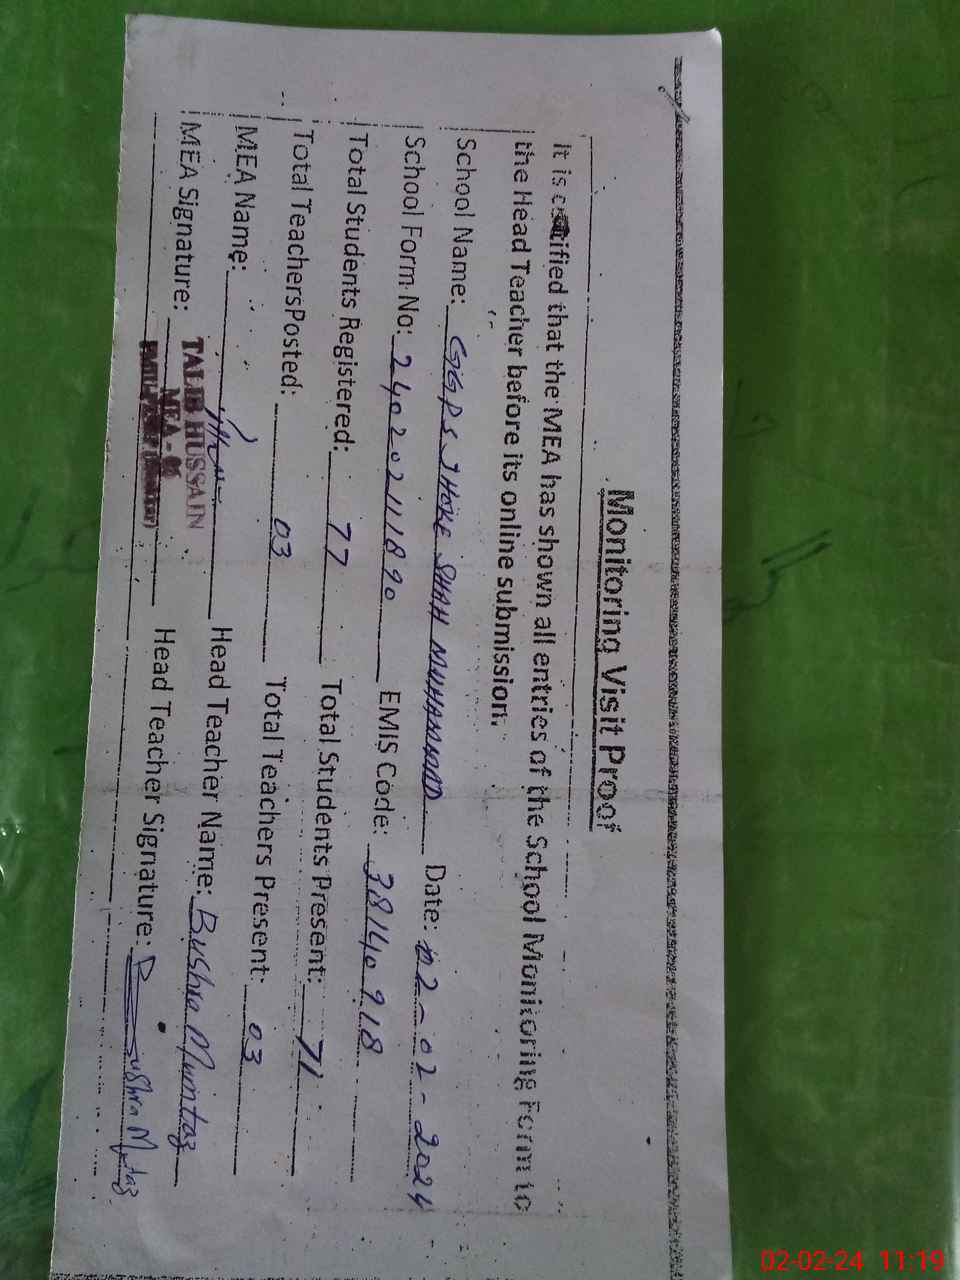 Monitoring Visit Proof
It is certified that the MEA has shown all entries of the School Monitoring Form to
the Head Teacher before its online submission.
School Name: GGPS JHOKE SHAH MUHAMMAD Date: 02-02-2024
School Form No: 24020211890 EMIS Code: 38140918
Total Students Registered: 77 Total Students Present: 71
Total TeachersPosted: 03 Total Teachers Present: 03
MEA Name: Head Teacher Name: Bushra Mumtaz
MEA Signature: TALIB HUSSAIN Head Teacher Signature: Bushra M
MEA -
02-02-24 11:19